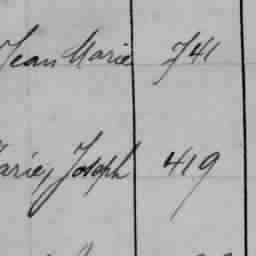 Jean Marie 741
Marie, Joseph 419